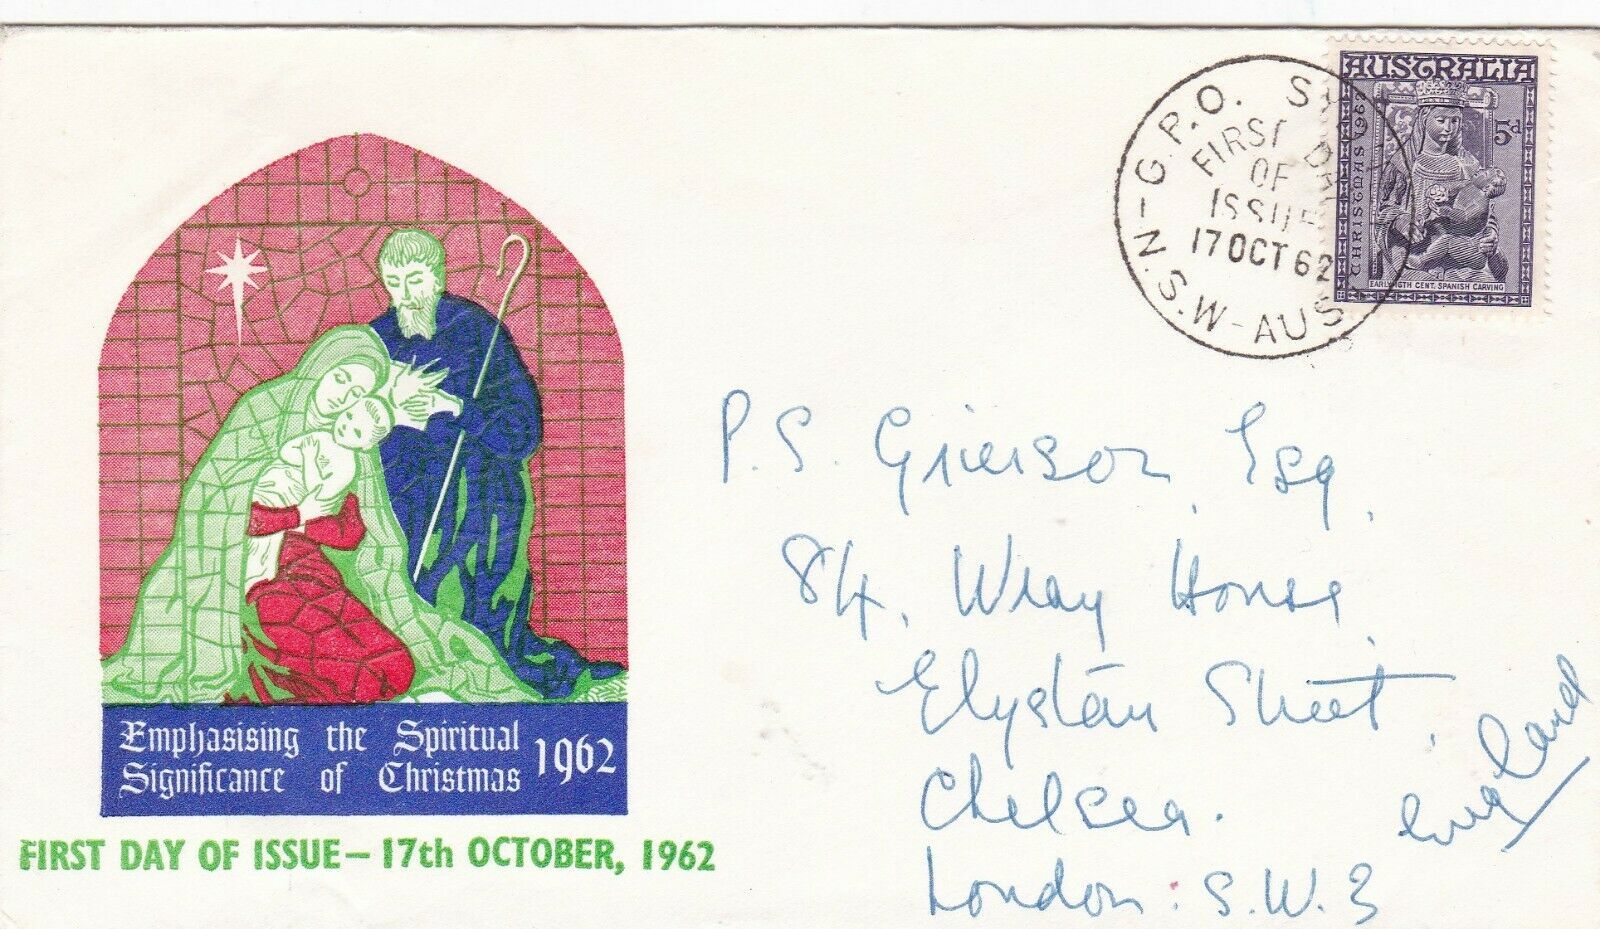 AUSTRALIA
CHRISTMAS 1962
5d
EARLY 16TH CENT. SPANISH CARVING
G.P.O. SY
N.S.W-AUS
FIRST DAY
OF
ISSUE
17 OCT 62
P.S. Grierson, Esq,
84, Wray House,
Elystan Street,
Chelsea.
London: S.W.3
England
Emphasising the Spiritual
Significance of Christmas 1962
FIRST DAY OF ISSUE – 17th OCTOBER, 1962